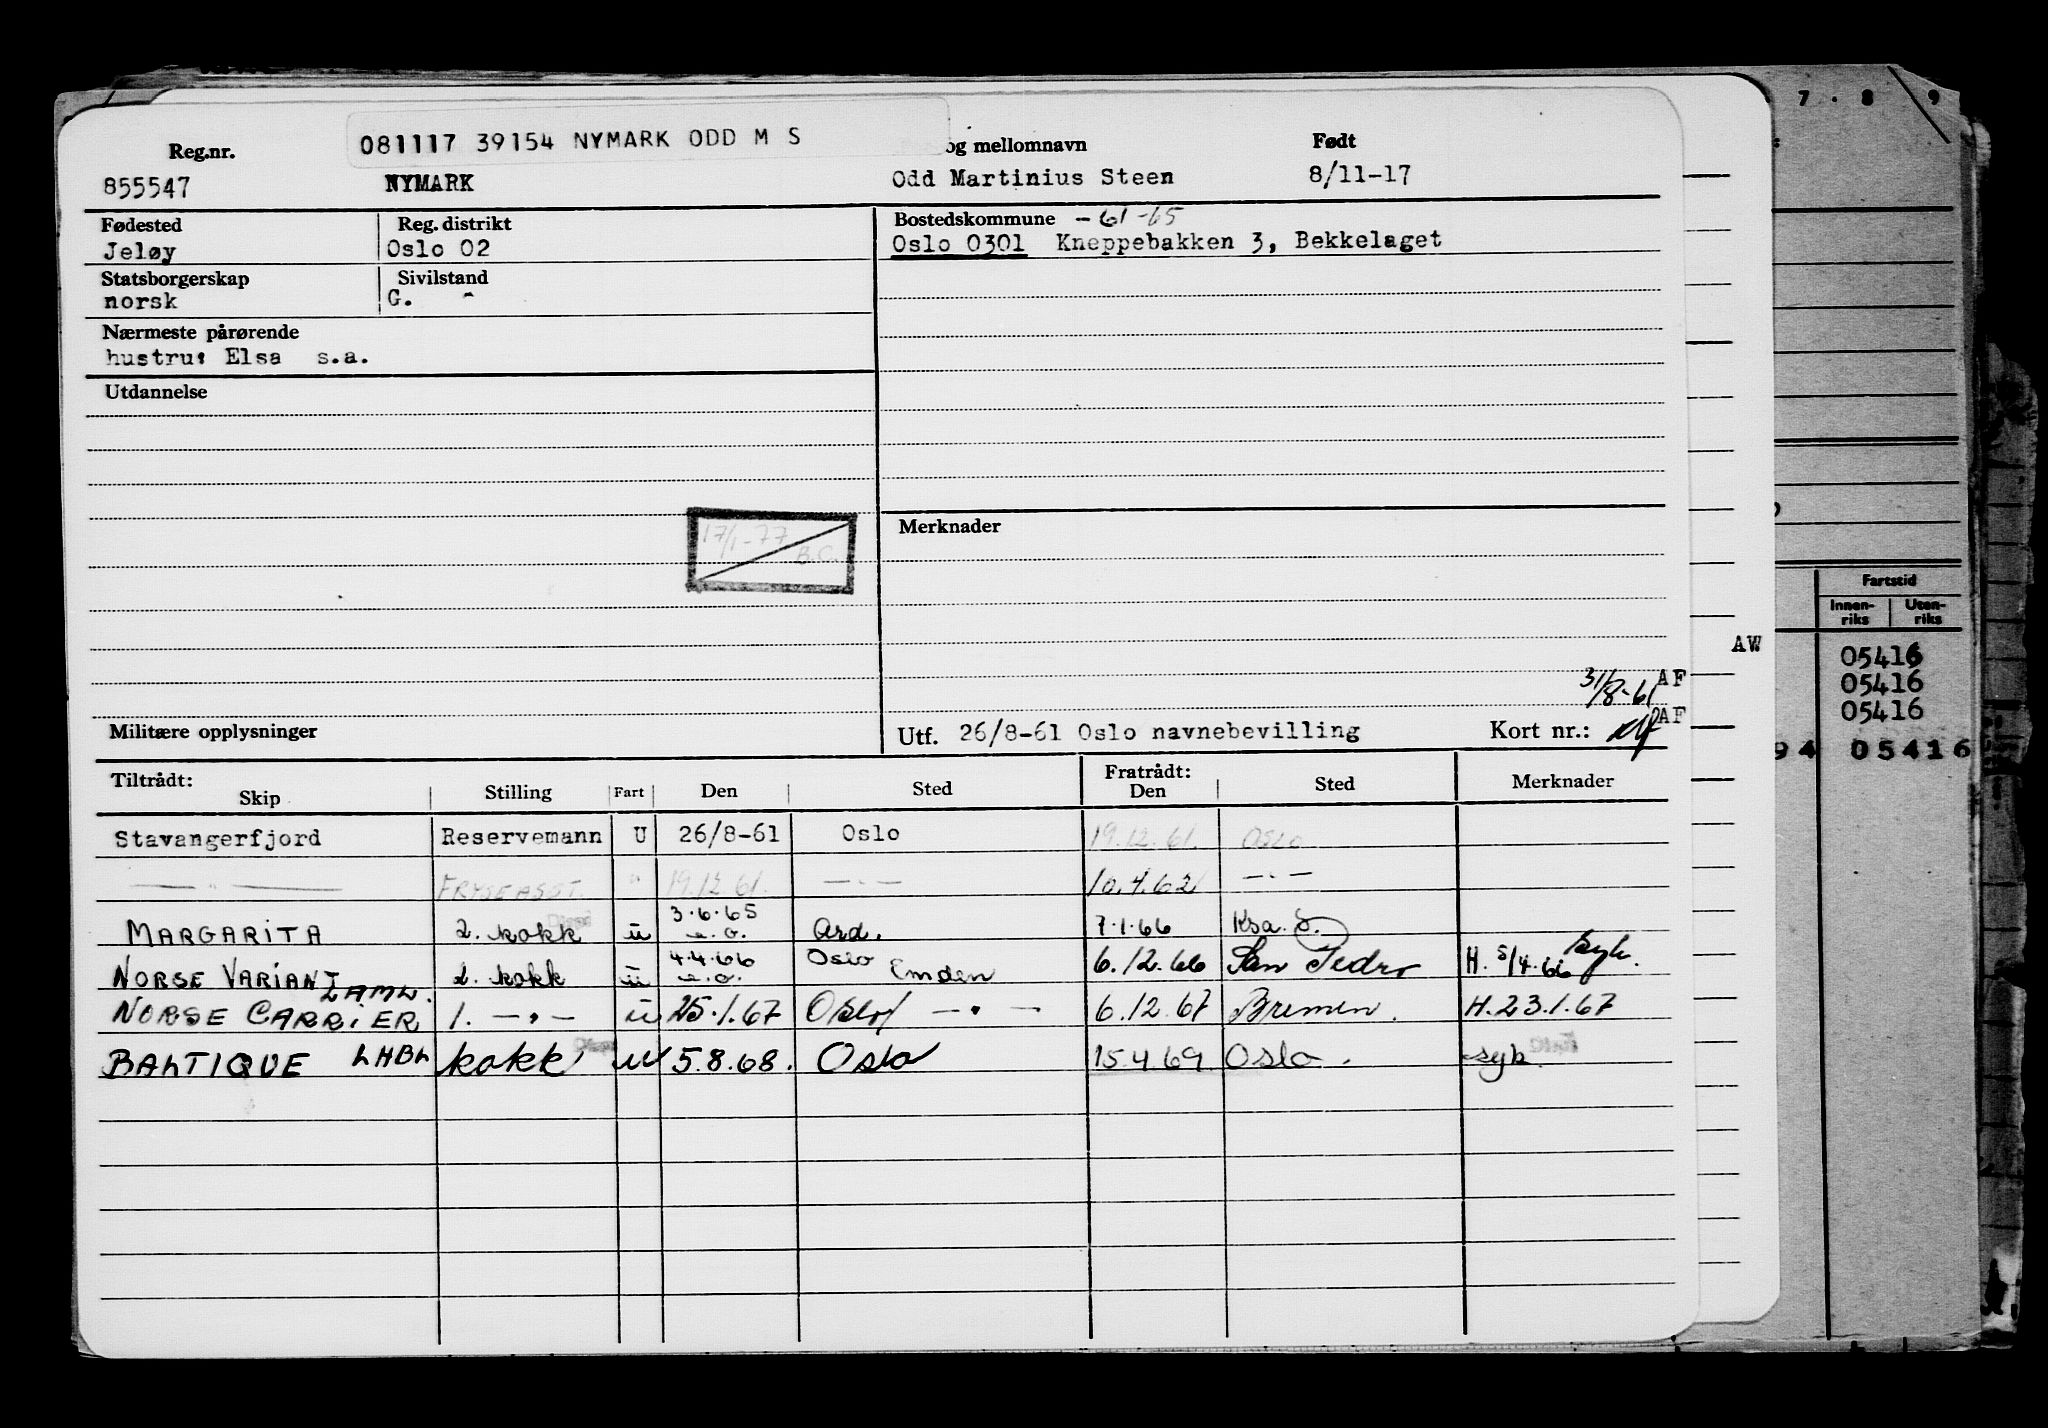 081117 39154 NYMARK ODD M S
Reg.nr. og mellomnavn Født
855547 NYMARK Odd Martinius Steen 8/11-17
Fødested Reg. distrikt Bostedskommune -61-65
Jeløy Oslo 02 Oslo 0301 Kneppebakken 3, Bekkelaget
Statsborgerskap Sivilstand
norsk G. -
Nærmeste pårørende
hustru: Elsa s.a.
Utdannelse
17/1-77 B.C.
Merknader
31/8-61 AF
AF
Militære opplysninger Utf. 26/8-61 Oslo navnebevilling Kort nr.:
Tiltrådt: Fratrådt:
Skip Stilling Fart Den Sted Den Sted Merknader
Stavangerfjord Reservemann U 26/8-61 Oslo 19.12.61. OSLO
— " — FRYSEASST. " 19.12.61. — " — 10.4.62 — " —
MARGARITA 2. kokk u 3.6.65 e.o. Ard. 7.1.66 Ksa. S.
NORSE VARIANT 2. kokk u 4.4.66 e.o. Oslo Emden 6.12.66 San Pedro H. 5/4.66 syk.
NORSE CARRIER LAMW. 1. — " — u 25.1.67 Oslo — " — 6.12.67 Bremen. H. 23.1.67
BALTIQUE LHBL kokk u 5.8.68. Oslo 15.4.69 Oslo. syk.
7 · 8 9
AW
Fartstid
Innen-riks Uten-riks
05416
05416
05416
94 05416